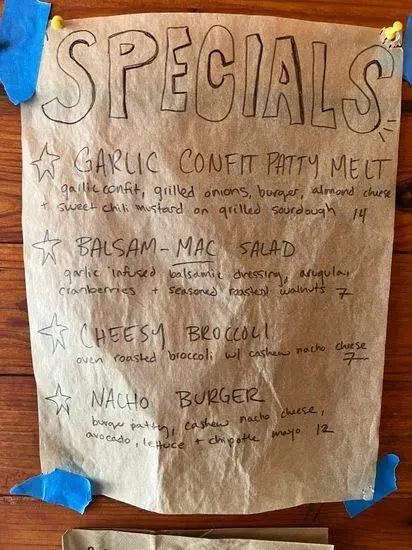 SPECIALS
☆ GARLIC CONFIT PATTY MELT
garlic confit, grilled onions, burger, almond cheese
+ sweet chili mustard on grilled sourdough 14
☆ BALSAM-MAC SALAD
garlic infused balsamic dressing, arugula,
cranberries + seasoned roasted walnuts 7
☆ CHEESY BROCCOLI
oven roasted broccoli w/ cashew nacho cheese
7
☆ NACHO BURGER
burger patty, cashew nacho cheese,
avocado, lettuce + chipotle mayo 12